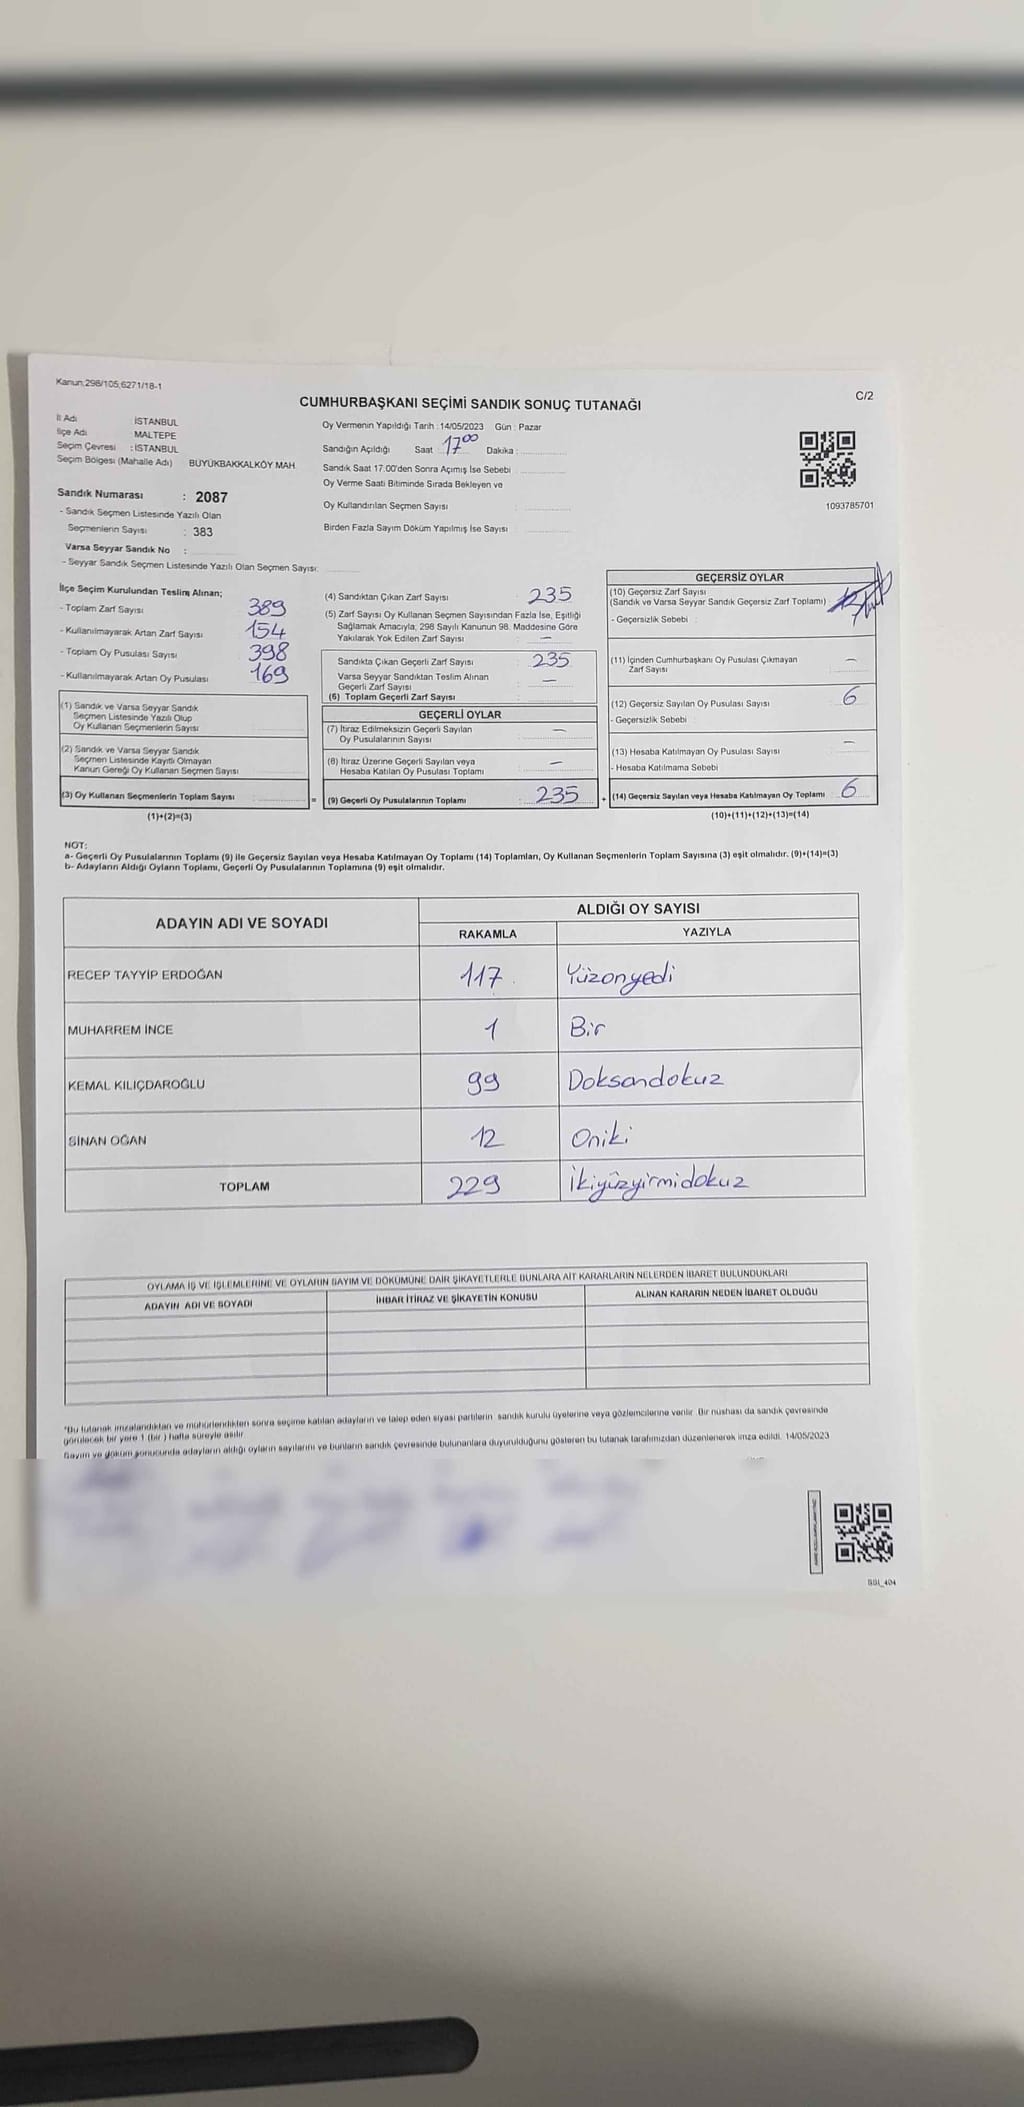 Kanun;298/105;6271/18-1
C/2
CUMHURBAŞKANI SEÇİMİ SANDIK SONUÇ TUTANAĞI
İl Adı İSTANBUL
İlçe Adı MALTEPE
Seçim Çevresi : İSTANBUL
Seçim Bölgesi (Mahalle Adı) BÜYÜKBAKKALKÖY MAH.
Sandık Numarası : 2087
- Sandık Seçmen Listesinde Yazılı Olan
Seçmenlerin Sayısı : 383
Varsa Seyyar Sandık No :
- Seyyar Sandık Seçmen Listesinde Yazılı Olan Seçmen Sayısı:
Oy Vermenin Yapıldığı Tarih : 14/05/2023 Gün : Pazar
Sandığın Açıldığı Saat 17 00 Dakika :
Sandık Saat 17.00'den Sonra Açımış İse Sebebi
Oy Verme Saati Bitiminde Sırada Bekleyen ve
Oy Kullandırılan Seçmen Sayısı :
Birden Fazla Sayım Döküm Yapılmış İse Sayısı
1093785701
İlçe Seçim Kurulundan Teslim Alınan;
- Toplam Zarf Sayısı 389
- Kullanılmayarak Artan Zarf Sayısı 154
- Toplam Oy Pusulası Sayısı 398
- Kullanılmayarak Artan Oy Pusulası 169
(1) Sandık ve Varsa Seyyar Sandık
Seçmen Listesinde Yazılı Olup
Oy Kullanan Seçmenlerin Sayısı
(2) Sandık ve Varsa Seyyar Sandık
Seçmen Listesinde Kayıtlı Olmayan
Kanun Gereği Oy Kullanan Seçmen Sayısı
(3) Oy Kullanan Seçmenlerin Toplam Sayısı :
(1)+(2)=(3)
(4) Sandıktan Çıkan Zarf Sayısı : 235
(5) Zarf Sayısı Oy Kullanan Seçmen Sayısından Fazla İse, Eşitliği
Sağlamak Amacıyla, 298 Sayılı Kanunun 98. Maddesine Göre
Yakılarak Yok Edilen Zarf Sayısı : —
Sandıkta Çıkan Geçerli Zarf Sayısı : 235
Varsa Seyyar Sandıktan Teslim Alınan
Geçerli Zarf Sayısı —
(6) Toplam Geçerli Zarf Sayısı :
GEÇERLİ OYLAR
(7) İtiraz Edilmeksizin Geçerli Sayılan
Oy Pusulalarının Sayısı —
(8) İtiraz Üzerine Geçerli Sayılan veya
Hesaba Katılan Oy Pusulası Toplamı —
= (9) Geçerli Oy Pusulalarının Toplamı : 235
GEÇERSİZ OYLAR
(10) Geçersiz Zarf Sayısı
(Sandık ve Varsa Seyyar Sandık Geçersiz Zarf Toplamı)
- Geçersizlik Sebebi :
(11) İçinden Cumhurbaşkanı Oy Pusulası Çıkmayan
Zarf Sayısı —
(12) Geçersiz Sayılan Oy Pusulası Sayısı 6
- Geçersizlik Sebebi
(13) Hesaba Katılmayan Oy Pusulası Sayısı —
- Hesaba Katılmama Sebebi
+ (14) Geçersiz Sayılan veya Hesaba Katılmayan Oy Toplamı 6
(10)+(11)+(12)+(13)=(14)
NOT:
a- Geçerli Oy Pusulalarının Toplamı (9) ile Geçersiz Sayılan veya Hesaba Katılmayan Oy Toplamı (14) Toplamları, Oy Kullanan Seçmenlerin Toplam Sayısına (3) eşit olmalıdır. (9)+(14)=(3)
b- Adayların Aldığı Oyların Toplamı, Geçerli Oy Pusulalarının Toplamına (9) eşit olmalıdır.
ADAYIN ADI VE SOYADI
ALDIĞI OY SAYISI
RAKAMLA YAZIYLA
RECEP TAYYİP ERDOĞAN 117 Yüzonyedi
MUHARREM İNCE 1 Bir
KEMAL KILIÇDAROĞLU 99 Doksandokuz
SİNAN OĞAN 12 Oniki
TOPLAM 229 İkiyüzyirmidokuz
OYLAMA İŞ VE İŞLEMLERİNE VE OYLARIN SAYIM VE DÖKÜMÜNE DAİR ŞİKAYETLERLE BUNLARA AİT KARARLARIN NELERDEN İBARET BULUNDUKLARI
ADAYIN ADI VE SOYADI İHBAR İTİRAZ VE ŞİKAYETİN KONUSU ALINAN KARARIN NEDEN İBARET OLDUĞU
*Bu tutanak imzalandıktan ve mühürlendikten sonra seçime katılan adayların ve talep eden siyasi partilerin sandık kurulu üyelerine veya gözlemcilerine verilir. Bir nüshası da sandık çevresinde
görülecek bir yere 1 (bir) hafta süreyle asılır.
Sayım ve döküm sonucunda adayların aldığı oyların sayılarını ve bunların sandık çevresinde bulunanlara duyurulduğunu gösteren bu tutanak tarafımızdan düzenlenerek imza edildi. 14/05/2023